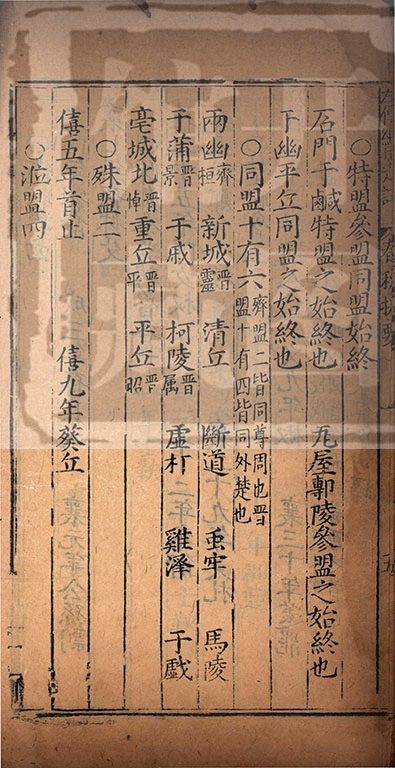 〇特盟參盟同盟始終
石門于鹹特盟之始終也 瓦屋鄟陵參盟之始終也
下幽平丘同盟之始終也
〇同盟十有六 齊盟二皆同尊周也晋盟十有四皆同外楚也
兩幽齊桓 新城晋靈 清丘 斷道 䖝牢 馬陵
于蒲晋景 于戚 柯陵晋厲 虛朾 雞澤 于戲
亳城北晋悼 重丘晋 平丘晋昭
〇殊盟二
僖五年首止 僖九年葵丘
〇涖盟四